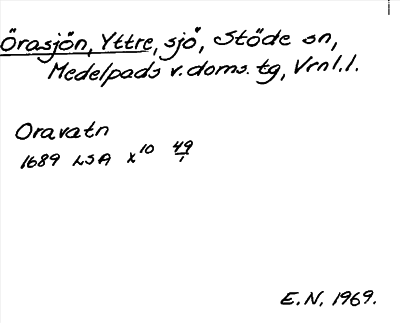 Örasjön, Yttre, sjö, Stöde sn,
Medelpads v. doms. tg, Vrnl. l.
Oravatn
1689 LSA X¹⁰ 49/1
E.N. 1969.